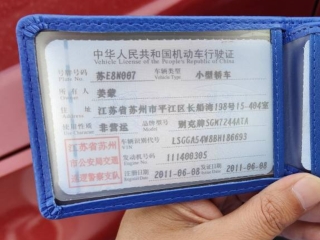 中华人民共和国机动车行驶证
Vehicle License of the People's Republic of China
号牌号码 苏E8N007 车辆类型 小型轿车
Plate No. Vehicle Type
所有人
Owner
住址 江苏省苏州市平江区长船湾198号15-404室
Address
使用性质 非营运 品牌型号 别克牌SGM7244ATA
Use Character Model
江苏省苏州市公安局交通巡逻警察支队
车辆识别代号 LSGGA54W8BH186693
VIN
发动机号码 111400305
Engine No.
注册日期 2011-06-08 发证日期 2011-06-08
Register Date Issue Date